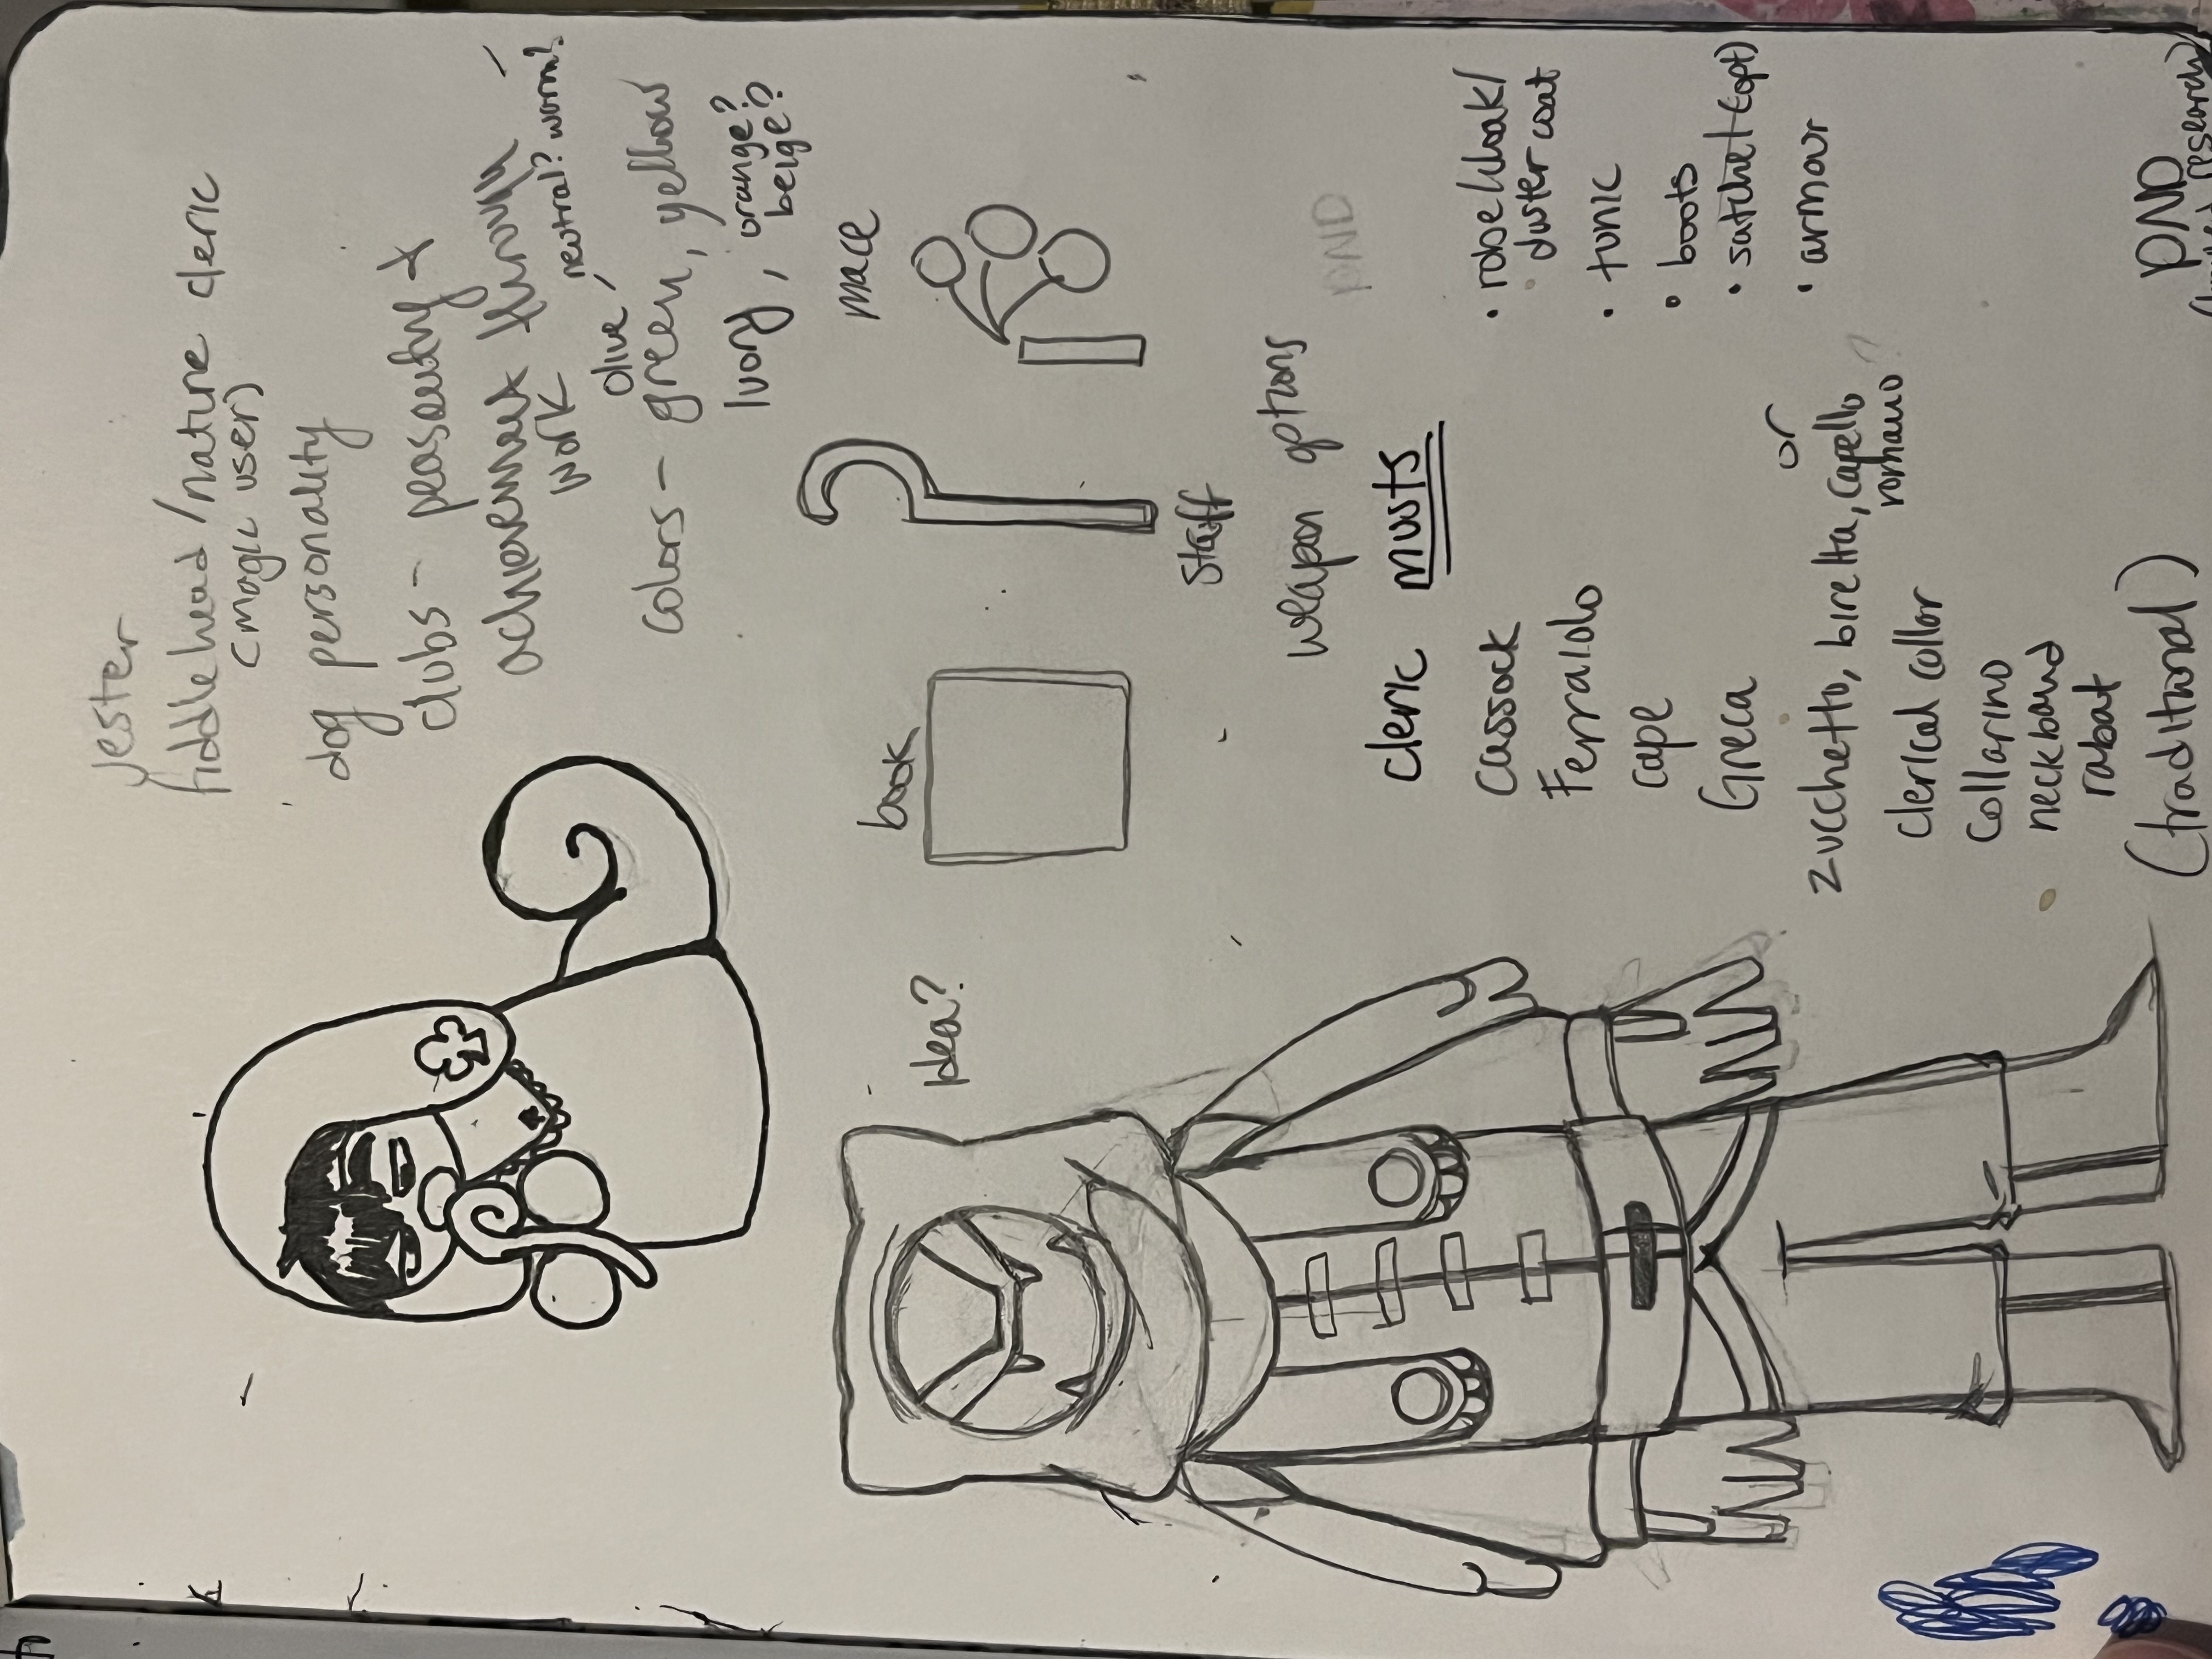 Jester
fiddlehead/nature cleric
(magic user)
dog personality
clubs - peasantry +
achievement through
work
neutral? warm?
olive
colors - green, yellow
Ivory, orange?
beige?
Idea?
book
staff
mace
weapon options
DND
cleric musts
cassock
Ferraiolo
cape
Greca
or
zucchetto, biretta, capello
romano
clerical collar
collarino
neckband
rabat
(traditional)
• robe/cloak/
duster coat
• tunic
• boots
• satchel (opt)
• armour
DND
research)